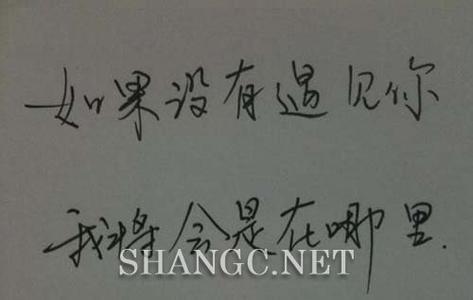 如果没有遇见你
我将会是在哪里.
SHANGC.NET